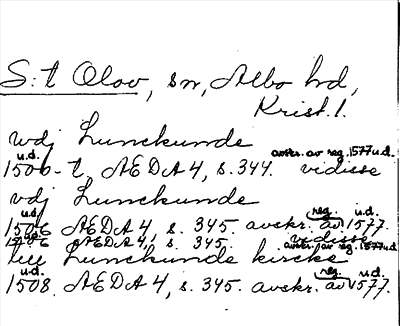 S:t Olov, sn, Albo hd,
Krist. l.
wdj Lunckunde
u.d. avskr. av reg. 1577 u.d.
1506-t, AEDA 4, s. 344. vidisse
vdj Lunckunde
u.d. reg. u.d.
1506 AEDA 4, s. 345. avskr. av 1577.
AEDA 4, s. 345. vidisse
avskr. av reg. 1577 u.d.
till Lunckunde kircke
u.d. reg. u.d.
1508. AEDA 4, s. 345. avskr. av 1577.